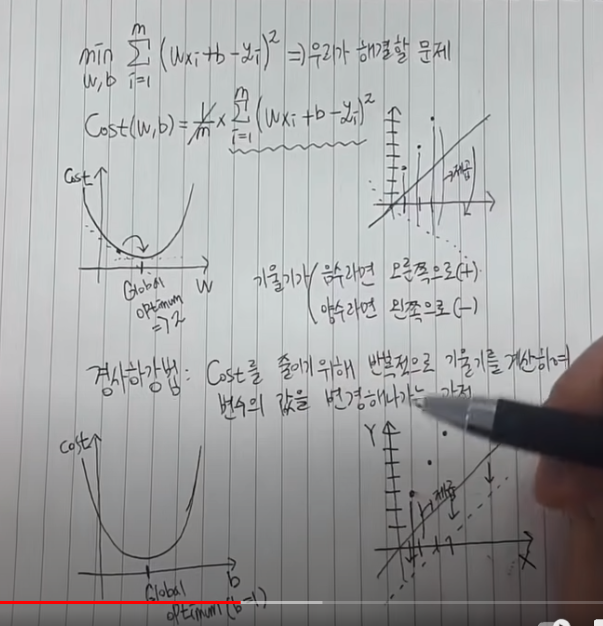 min Σ (wxi+b-yi)² ⇒ 우리가 해결할 문제
w,b i=1 m
Cost(w,b) = 1/m × Σ (wxi+b-yi)²
i=1 m
Cost
W
Global
optimum
⇒ 2
→제곱
기울기가 음수라면 오른쪽으로(+)
양수라면 왼쪽으로(-)
경사하강법: Cost를 줄이기 위해 반복적으로 기울기를 계산하여
변수의 값을 변경해나가는 과정
Cost
b
Global
optimum (b=1)
Y
제곱
X